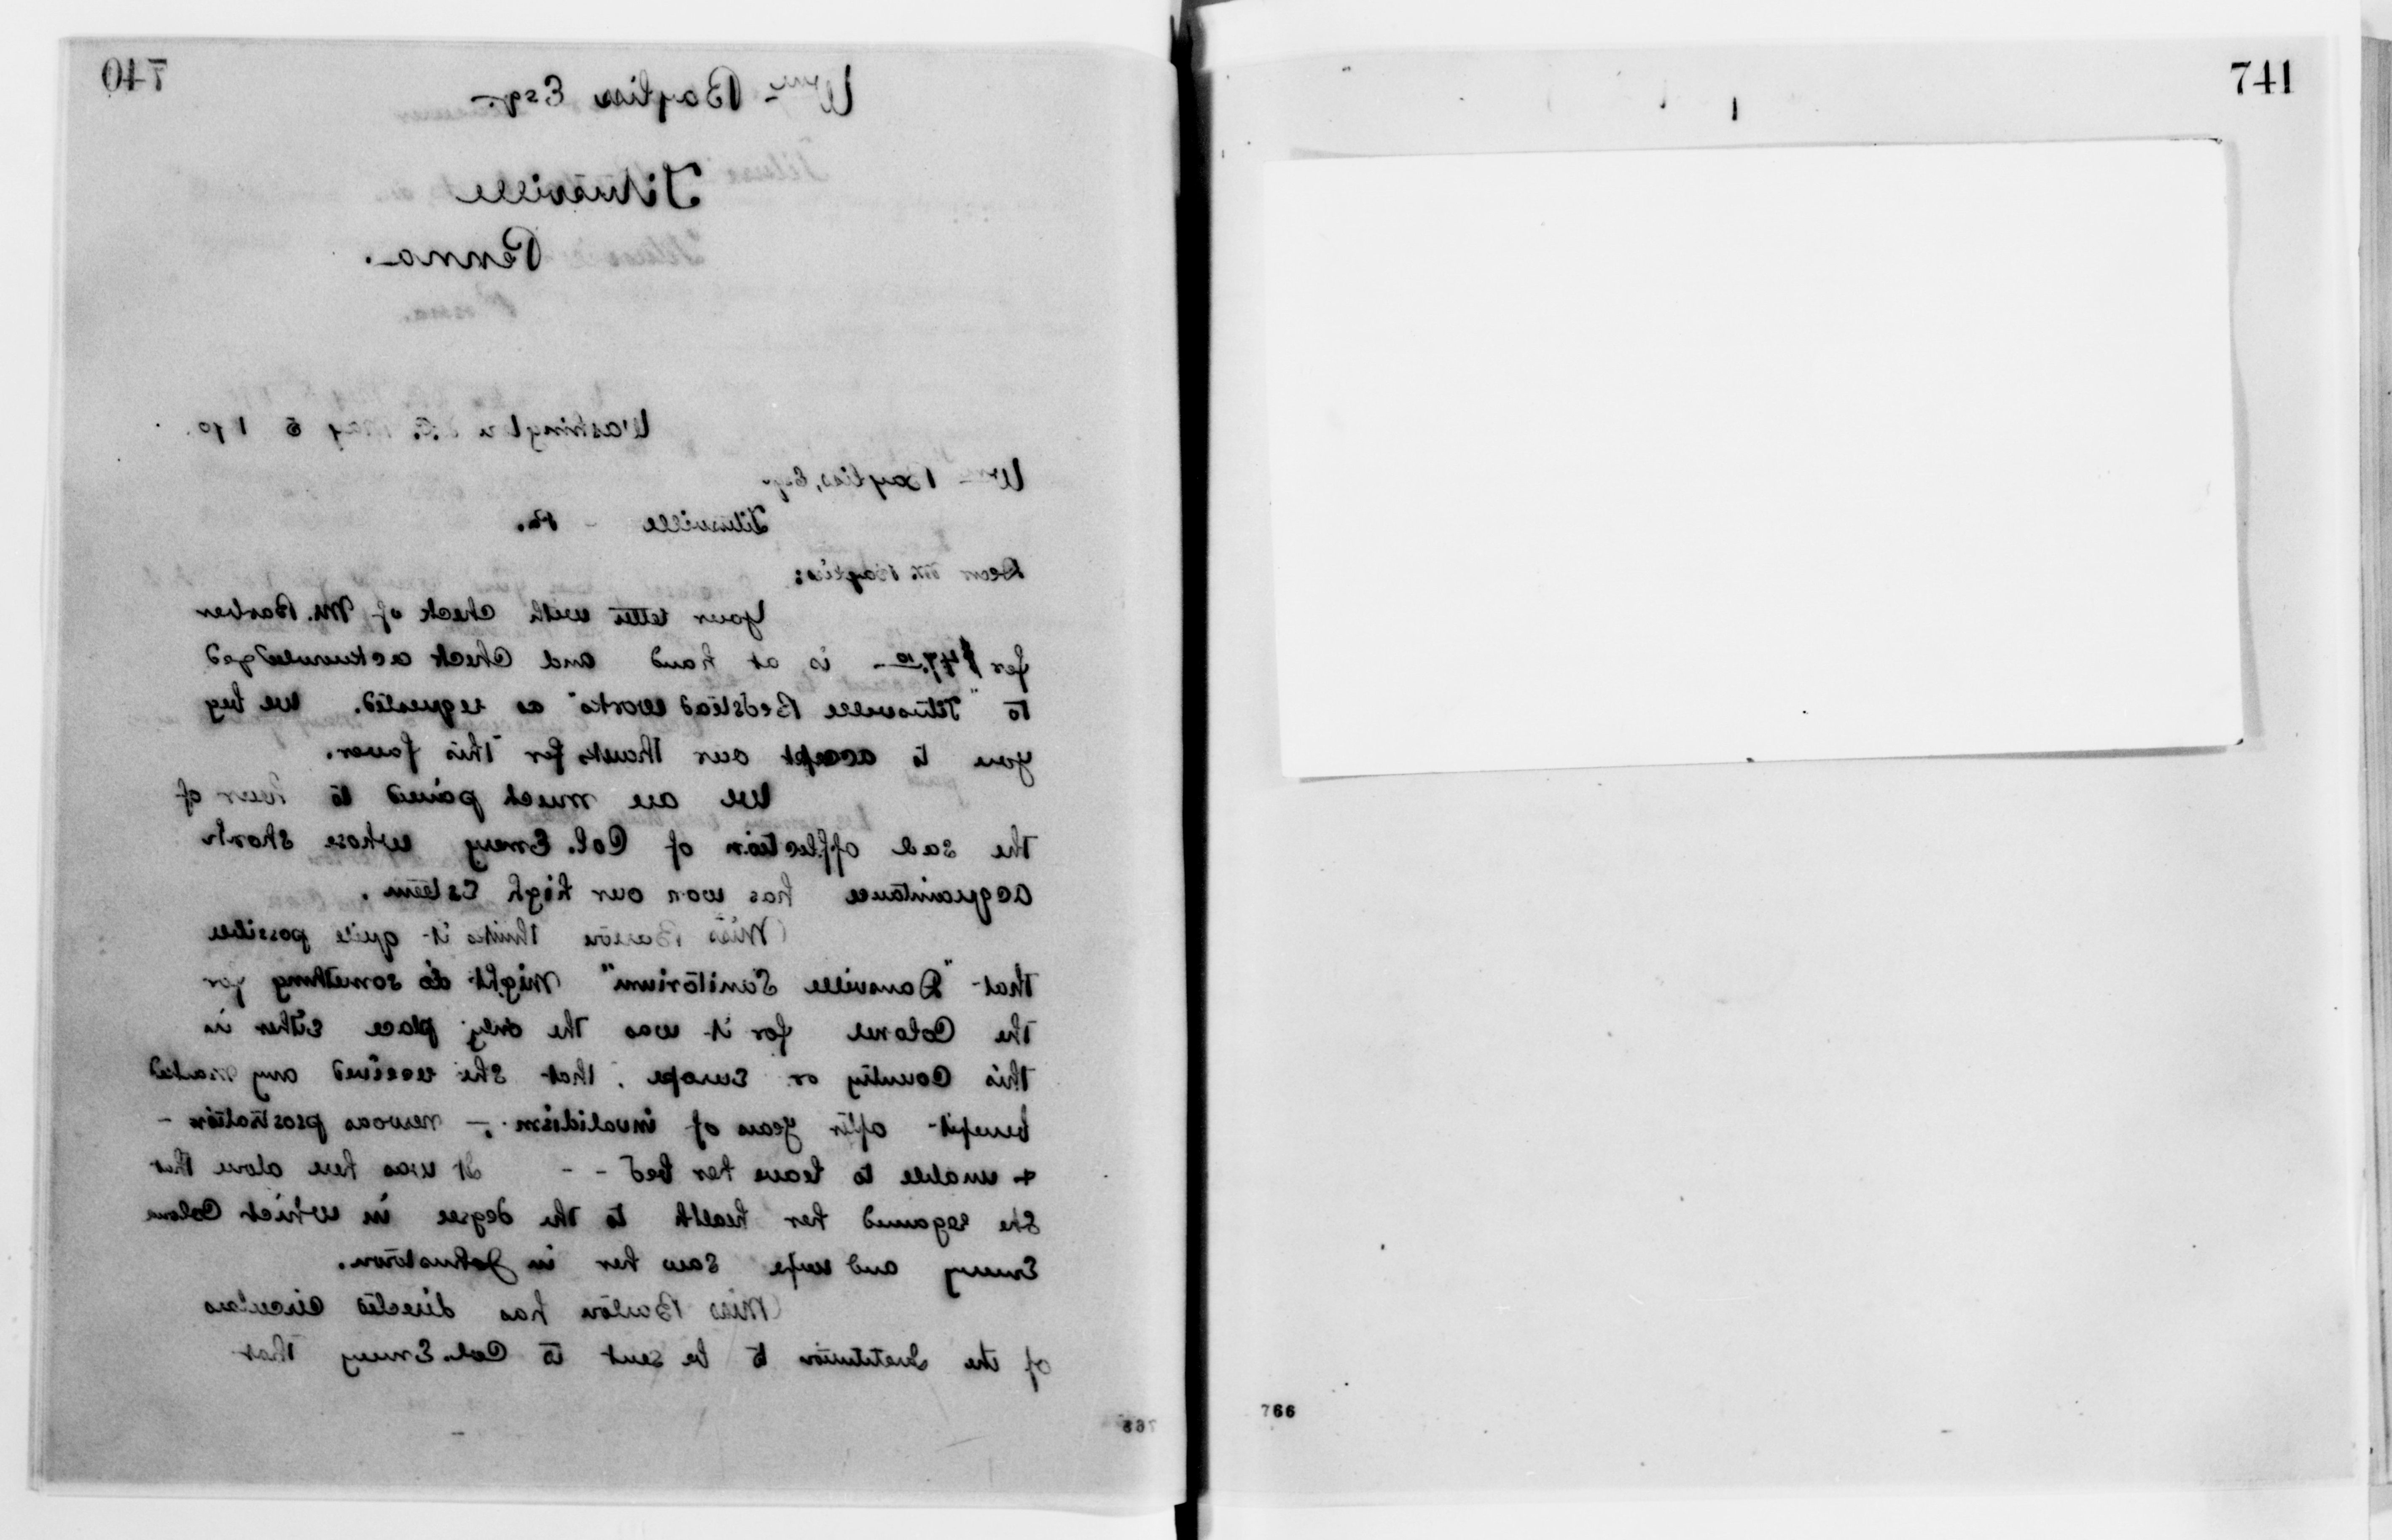 740
Wm Bayliss Esq.
Titusville
Penna.
Washington D.C. May 5
Wm Bayliss, Esq.
Titusville - Pa.
Dear Mr. Bayliss:
Your letter with check of Mr. Barber
for $47.10 is at hand and check acknowledged
to "Titusville Bedstead Works" as requested. We beg
you to accept our thanks for this favor.
We are much pained to hear of
the sad affliction of Col. Emery whose short
acquaintance has won our high Esteem.
Miss Barton thinks it quite possible
that "Dansville Sanitorium" might do something for
the Colonel for it was the only place Either in
this Country or Europe, that she received any marked
benefit after years of invalidism - nervous prostration -
+ unable to leave her bed - - It was here alone that
she regained her health to the degree in which Colonel
Emery and wife saw her in Johnstown.
Miss Barton has directed circulars
of the Institution to be sent to Col. Emery that
741
766